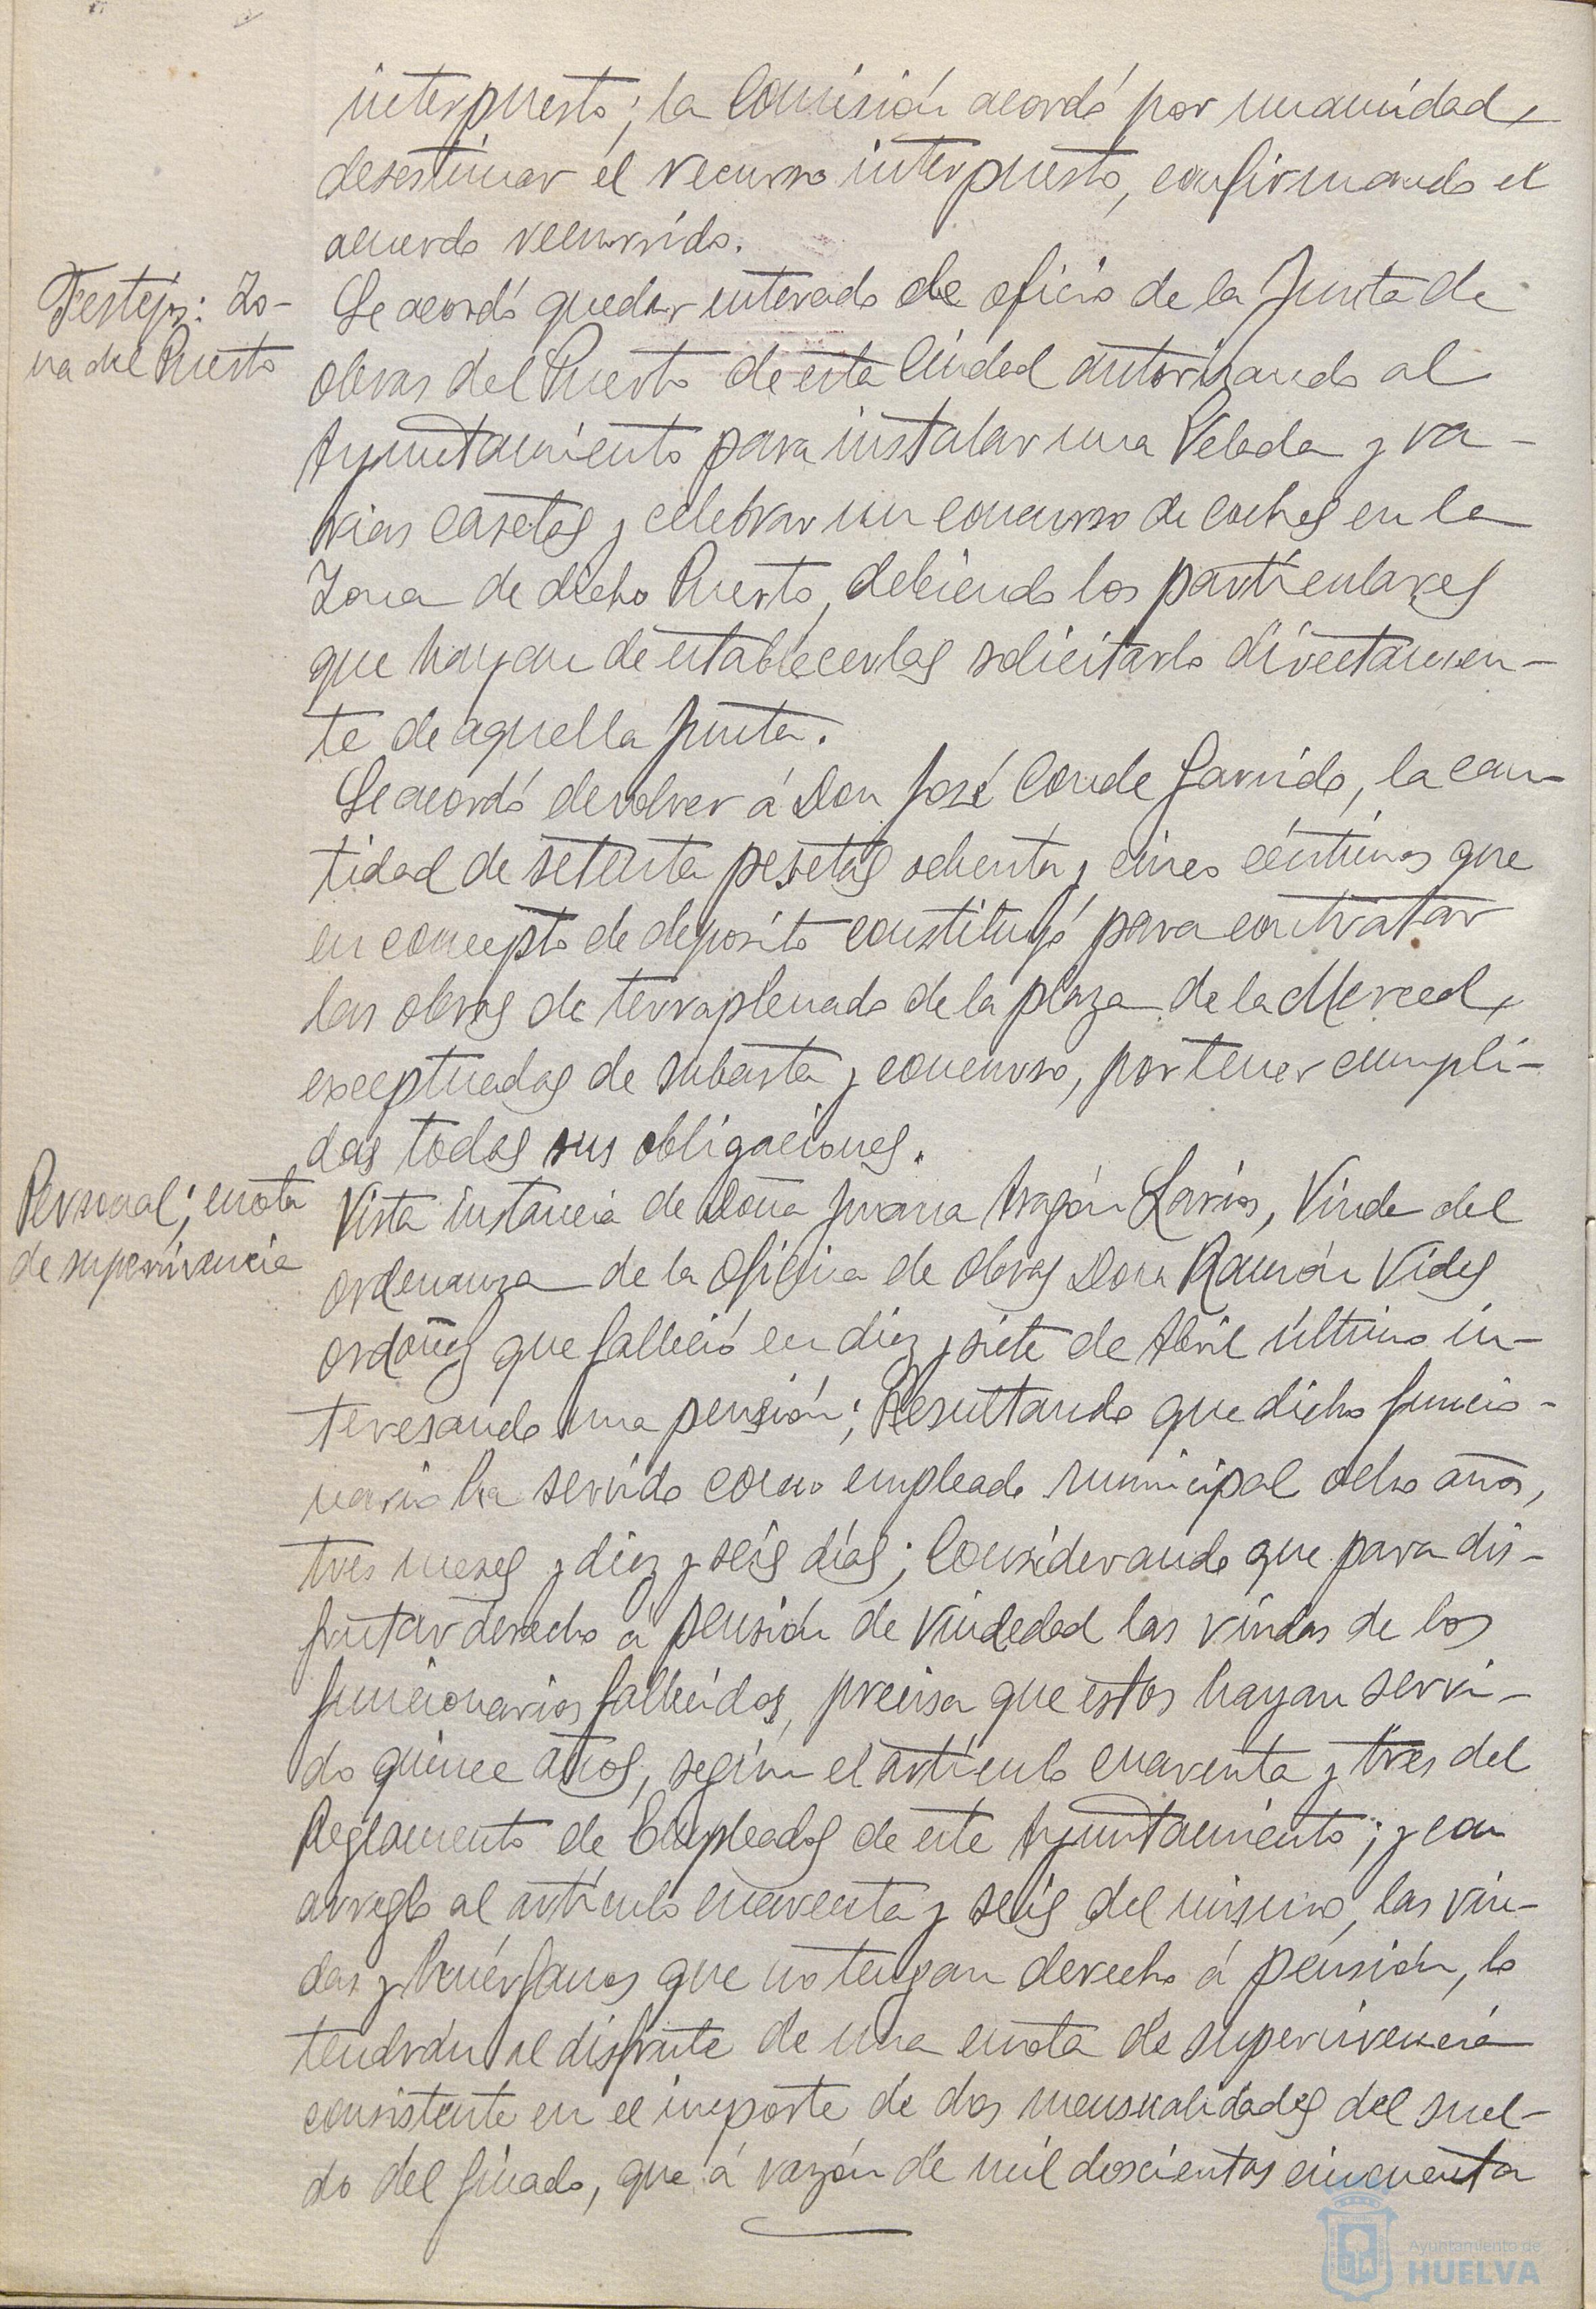 interpuesto; la Comisión acordó por unanimidad,
desestimar el recurso interpuesto, confirmando el
acuerdo recurrido.
Festejos: Zo-
na del Puerto
Se acordó quedar enterado de oficio de la Junta de
obras del Puerto de esta Ciudad autorizando al
Ayuntamiento para instalar una Velada y va-
rias casetas y celebrar un concurso de coches en la
Zona de dicho Puerto, debiendo los particulares
que hayan de establecerlas solicitarlo directamen-
te de aquella Junta.
Se acordó devolver á Don José Conde Garrido, la can-
tidad de setenta pesetas ochenta y cinco céntimos que
en concepto de deposito constituyó para contratar
las obras de terraplenado de la plaza de la Merced,
exceptuadas de subasta y concurso, por tener cumpli-
das todas sus obligaciones.
Personal; cuota
de supervivencia
Vista instancia de Doña Juana Aragón Larios, Viuda del
ordenanza de la Oficina de obras Don Ramón Vides
Ordoñez que falleció en diez y siete de Abril último in-
teresando una pensión; Resultando que dicho funcio-
nario ha servido como empleado municipal ocho años,
tres meses y diez y seis días; Considerando que para dis-
frutar derecho á pensión de viudedad las viudas de los
funcionarios fallecidos, precisa que estos hayan servi-
do quince años, según el artículo cuarenta y tres del
Reglamento de Empleados de este Ayuntamiento; y con
arreglo al artículo cuarenta y seis del mismo, las viu-
das y huérfanos que no tengan derecho á pensión, lo
tendrán al disfrute de una cuota de supervivencia
consistente en el importe de dos mensualidades del suel-
do del finado, que á razón de mil doscientas cincuenta
Ayuntamiento de
HUELVA